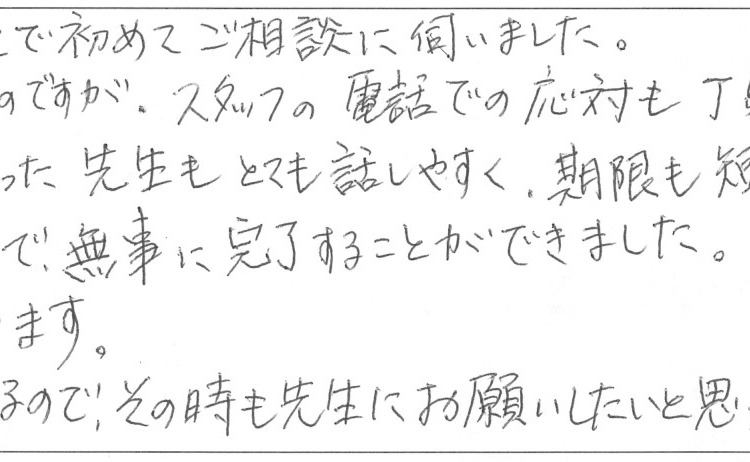 とで初めてご相談に伺いました。
のですが、スタッフの電話での応対も丁
った先生もとても話しやすく、期限も短
で、無事に完了することができました。
います。
るので、その時も先生にお願いしたいと思